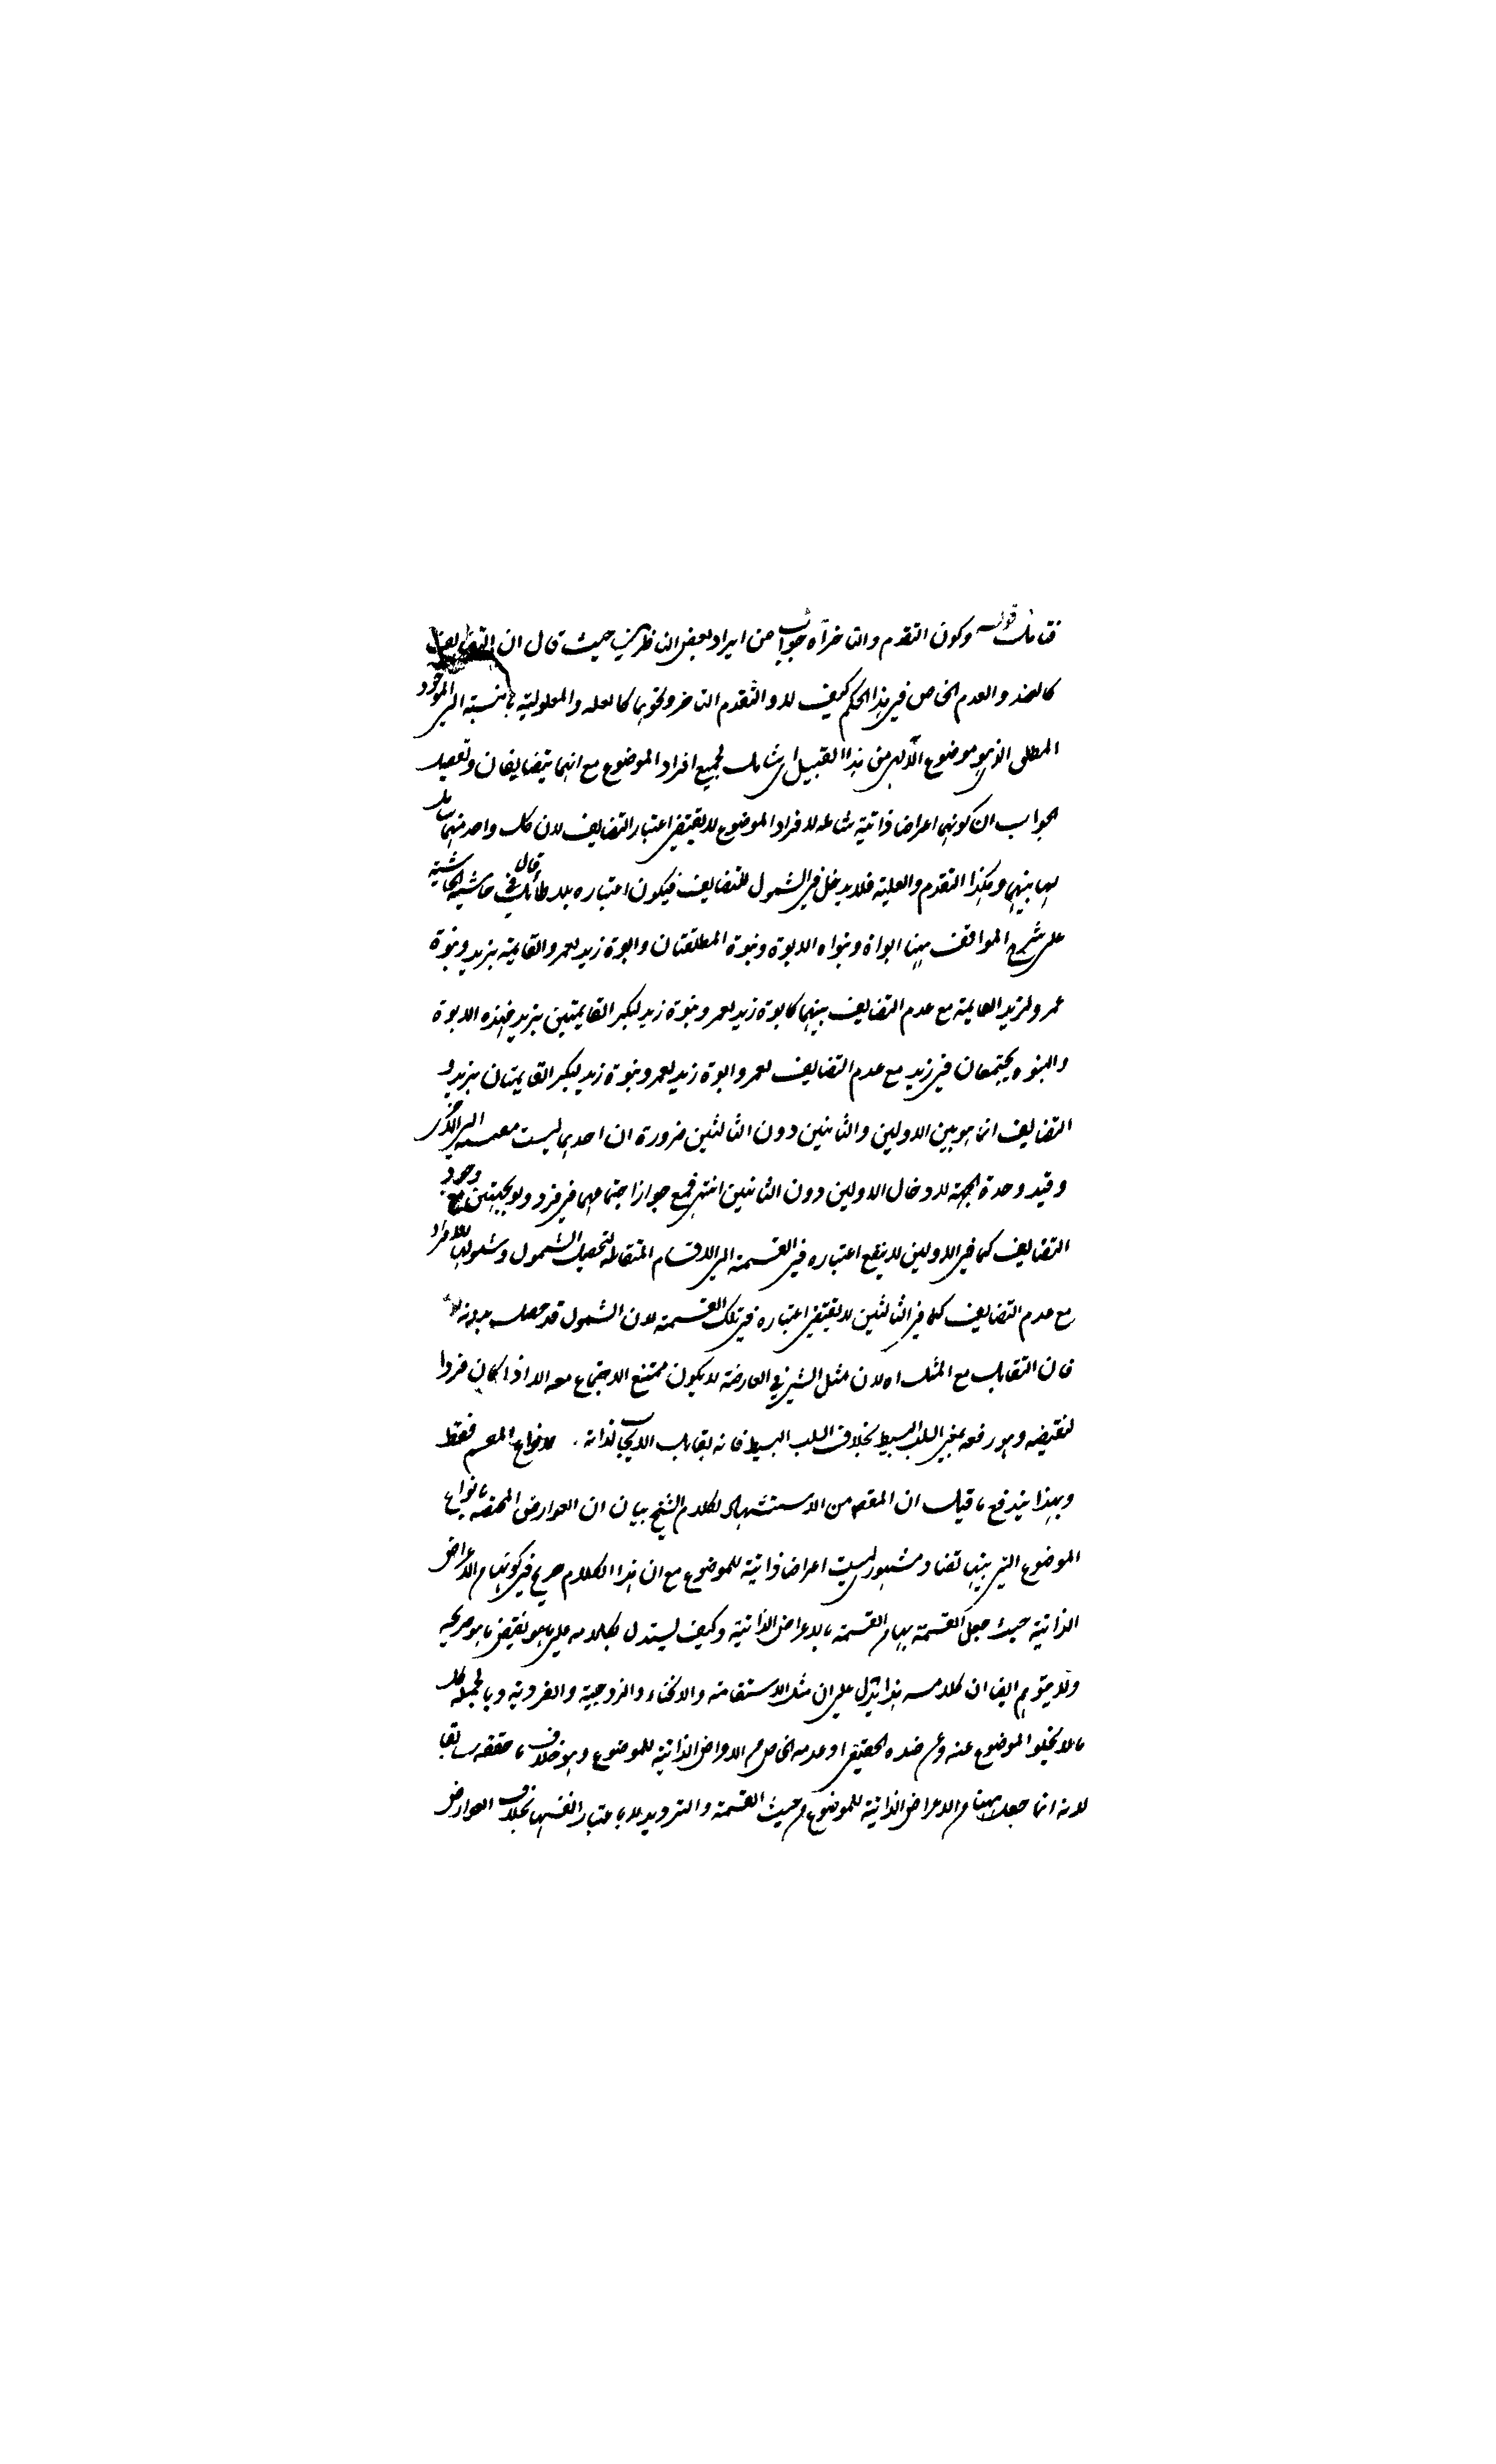 فتامل قوله وكون التقدم والتاخر آه جواب من ايراد بعض الناظرين حيث قال ان التضايف
كالضد والعدم الخاص في هذا الحكم كيف لا والتقدم التاخر ونحوهما كالعلة والمعلولية بالنسبة الى الموجود
المطلق الذي هو موضوع الالهي من هذا القبيل اي شامل لجميع افراد الموضوع مع انهما متضايفان وتفصيل
الجواب ان كونهما اعراضا ذاتية شاملة لافراد الموضوع لا يقتضي اعتبار التضايف لان كل واحد منهما
بينهما وهكذا التقدم والعلية فلا يدخل في الشمول للتضايف فيكون اعتباره بلا طائل قال في حاشية الحاشية
على شرح المواقف ههنا ابوة وبنوة الابوة وبنوة المطلقتان وابوة زيد لعمرو القايمة بزيد وبنوة
عمرو لزيد القايمة مع عدم التضايف بينهما كابوة زيد لعمرو وبنوة زيد لبكر القايمتين بزيد فهذه الابوة
والبنوة يجتمعان في زيد مع عدم التضايف لعمرو ابوة زيد لعمرو وبنوة زيد لبكر القايمتان بزيد و
التضايف انما هو بين الاولين والثانيين دون الثالثين ضرورة ان احديهما ليست مقيسة الى الاخرى
وقيد وحدة الجهة لادخال الاولين دون الثانيين انتهى فمع جواز اجتماعهما في فرد ولو بجهتين مع وجود
التضايف كما في الاولين لا ينفع اعتباره في القسمة الى الاقسام المتقابلة لتحصيل الشمول وشمولها للافراد
مع عدم التضايف كما في الثالثين لا يقتضي اعتباره في تلك القسمة لان الشمول قد حصل بدونه
فان التقابل مع المثل اه لان مثل الشئ في العارضة لا يكون ممتنع الاجتماع معه الا اذا كان فردا
لنقيضه وهو رفعه بمعنى السلب البسيط بخلاف السلب البسيط فانه يقابل الايجاب لذاته . لانواع المقسم فقط
وبهذا يندفع ما قيل ان المقصود من الاستشهاد لكلام الشيخ بيان ان العوارض المختصة بانواع
الموضوع التي بينها تضاد مشهوري ليست اعراضا ذاتية للموضوع مع ان هذا الكلام صريح في كونها من الاعراض
الذاتية حيث جعل القسمة بها من القسمة بالاعراض الذاتية وكيف يستدل بكلامه على ما هو نقيض ما هو صريحه
ولا يتوهم ايضا ان كلامه هذا يدل على ان مثل الاستقامة والانحناء والزوجية والفردية وبالجملة كل
ما لا يخلو الموضوع عنه وعن ضده الحقيقي او عدمه الخاص من الاعراض الذاتية للموضوع وهو خلاف ما حققه سابقا
لانه انما جعل ههنا من الاعراض الذاتية للموضوع من حيث القسمة والترديد لا باعتبار انفسها بخلاف العوارض